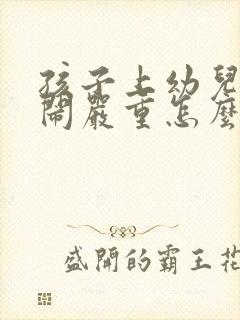 孩子上幼兒
鬧嚴重怎麼
盛開的霸王花